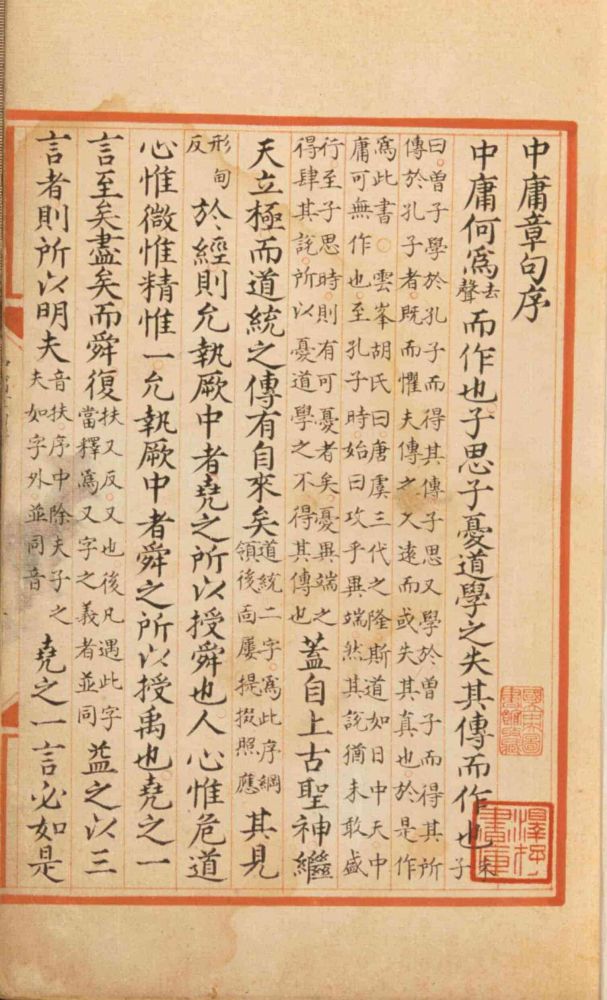 中庸章句序
中庸何爲去聲而作也子思子憂道學之失其傳而作也朱子
曰曾子學於孔子而得其傳子思又學於曾子而得其所
傳於孔子者既而懼夫傳之久遠而或失其真也於是作
爲此書○雲峯胡氏曰唐虞三代之隆斯道如日中天中
庸可無作也至孔子時始曰攻乎異端然其説猶未敢盛
行至子思時則有可憂者矣憂異端之
得肆其説所以憂道學之不得其傳也蓋自上古聖神繼
天立極而道統之傳有自來矣道統二字爲此序綱領後面屢提掇照應其見
形甸反於經則允執厥中者堯之所以授舜也人心惟危道
心惟微惟精惟一允執厥中者舜之所以授禹也堯之一
言至矣盡矣而舜復扶又反又也後凡遇此字當釋爲又字之義者並同益之以三
言者則所以明夫音扶序中除夫子之夫如字外並同音堯之一言必如是
澤存書庫